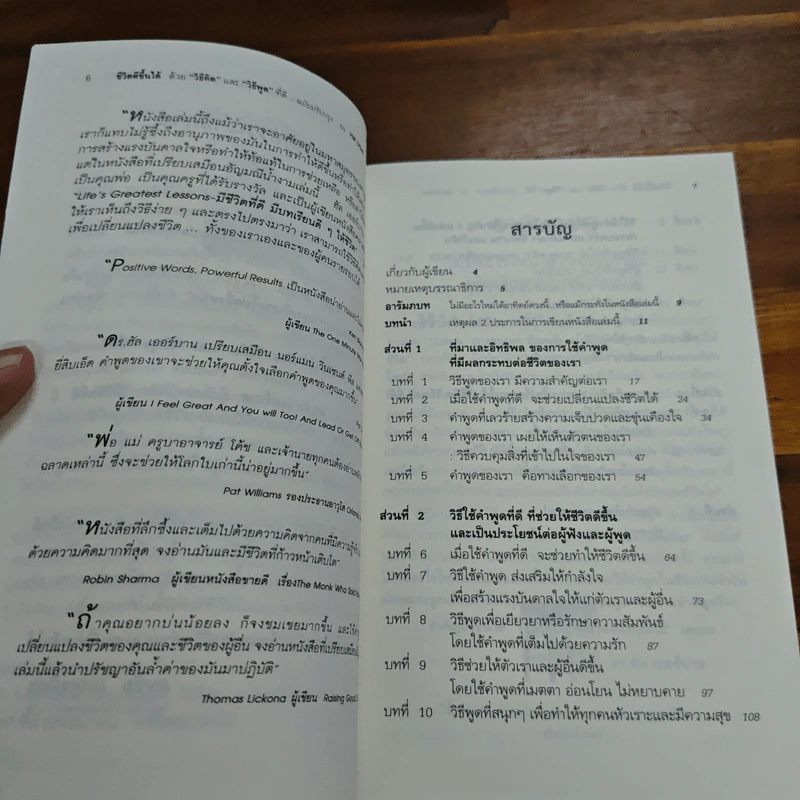 6 ชีวิตดีขึ้นได้ ด้วย "วิธีคิด" และ "วิธีพูด" ที่ดี
"หนังสือเล่มนี้ถึงแม้ว่าเราจะอาศัยอยู่ใน
เราก็แทบไม่รู้ซึ้งถึงอานุภาพของมันในการทำให้ดีขึ้นหรือ
การสร้างแรงบันดาลใจหรือทำให้ท้อแท้ในการช่วยเหลือ
แต่ในหนังสือที่เปรียบเสมือนอัญมณีน้ำงามเล่มนี้
เป็นคุณพ่อ เป็นคุณครูที่ได้รับรางวัล และเป็นผู้เขียนหนังสือ
"Life's Greatest Lessons-มีชีวิตที่ดี มีบทเรียนดี ๆ ให้ชีวิต"
ให้เราเห็นถึงวิธีง่าย ๆ และตรงไปตรงมาว่า เราสามารถใช้
เพื่อเปลี่ยนแปลงชีวิต ... ทั้งของเราเองและของผู้คนรายรอบ
"Positive Words, Powerful Results เป็นหนังสือน่าอ่าน
ผู้เขียน The One Minute
"ดร.ฮัล เออร์บาน เปรียบเสมือน นอร์แมน วินเซนต์
ยี่สิบเอ็ด คำพูดของเขาจะช่วยให้คุณตั้งใจเลือกคำพูดของคุณมากขึ้น"
ผู้เขียน I Feel Great And You will Too! And Lead Or Get Off
"พ่อ แม่ ครูบาอาจารย์ โค้ช และเจ้านายทุกคนต้องอ่าน
ฉลาดเหล่านี้ ซึ่งจะช่วยให้โลกใบเก่านี้น่าอยู่มากขึ้น"
Pat Williams รองประธานอาวุโส
"หนังสือที่ลึกซึ้งและเต็มไปด้วยความคิดจากคนที่มีความรู้
ด้วยความคิดมากที่สุด จงอ่านมันและมีชีวิตที่ก้าวหน้าเติบโต"
Robin Sharma ผู้เขียนหนังสือขายดี เรื่องThe Monk Who
"ถ้าคุณอยากบ่นน้อยลง ก็จงชมเชยมากขึ้น และใช้
เปลี่ยนแปลงชีวิตของคุณและชีวิตของผู้อื่น จงอ่านหนังสือที่เปรียบเสมือน
เล่มนี้แล้วนำปรัชญาอันล้ำค่าของมันมาปฏิบัติ"
Thomas Lickona ผู้เขียน Raising Good
7
สารบัญ
เกี่ยวกับผู้เขียน 4
หมายเหตุบรรณาธิการ 5
อารัมภบท ไม่มีอะไรใหม่ใต้อาทิตย์ดวงนี้...หรือแม้กระทั่งในหนังสือเล่มนี้ 9
บทนำ เหตุผล 2 ประการในการเขียนหนังสือเล่มนี้ 11
ส่วนที่ 1 ที่มาและอิทธิพล ของการใช้คำพูด
ที่มีผลกระทบต่อชีวิตของเรา
บทที่ 1 วิธีพูดของเรา มีความสำคัญต่อเรา 17
บทที่ 2 เมื่อใช้คำพูดที่ดี จะช่วยเปลี่ยนแปลงชีวิตได้ 24
บทที่ 3 คำพูดที่เลวร้ายสร้างความเจ็บปวดและขุ่นเคืองใจ 34
บทที่ 4 คำพูดของเรา เผยให้เห็นถึงตัวตนของเรา
: วิธีควบคุมสิ่งที่เข้าไปในใจของเรา 47
บทที่ 5 คำพูดของเรา คือทางเลือกของเรา 54
ส่วนที่ 2 วิธีใช้คำพูดที่ดี ที่ช่วยให้ชีวิตดีขึ้น
และเป็นประโยชน์ต่อผู้ฟังและผู้พูด
บทที่ 6 เมื่อใช้คำพูดที่ดี จะช่วยทำให้ชีวิตดีขึ้น 64
บทที่ 7 วิธีใช้คำพูด ส่งเสริมให้กำลังใจ
เพื่อสร้างแรงบันดาลใจให้แก่ตัวเราและผู้อื่น 73
บทที่ 8 วิธีพูดเพื่อเยียวยาหรือรักษาความสัมพันธ์
โดยใช้คำพูดที่เต็มไปด้วยความรัก 87
บทที่ 9 วิธีช่วยให้ตัวเราและผู้อื่นดีขึ้น
โดยใช้คำพูดที่เมตตา อ่อนโยน ไม่หยาบคาย 97
บทที่ 10 วิธีพูดที่สนุกๆ เพื่อทำให้ทุกคนหัวเราะและมีความสุข 108